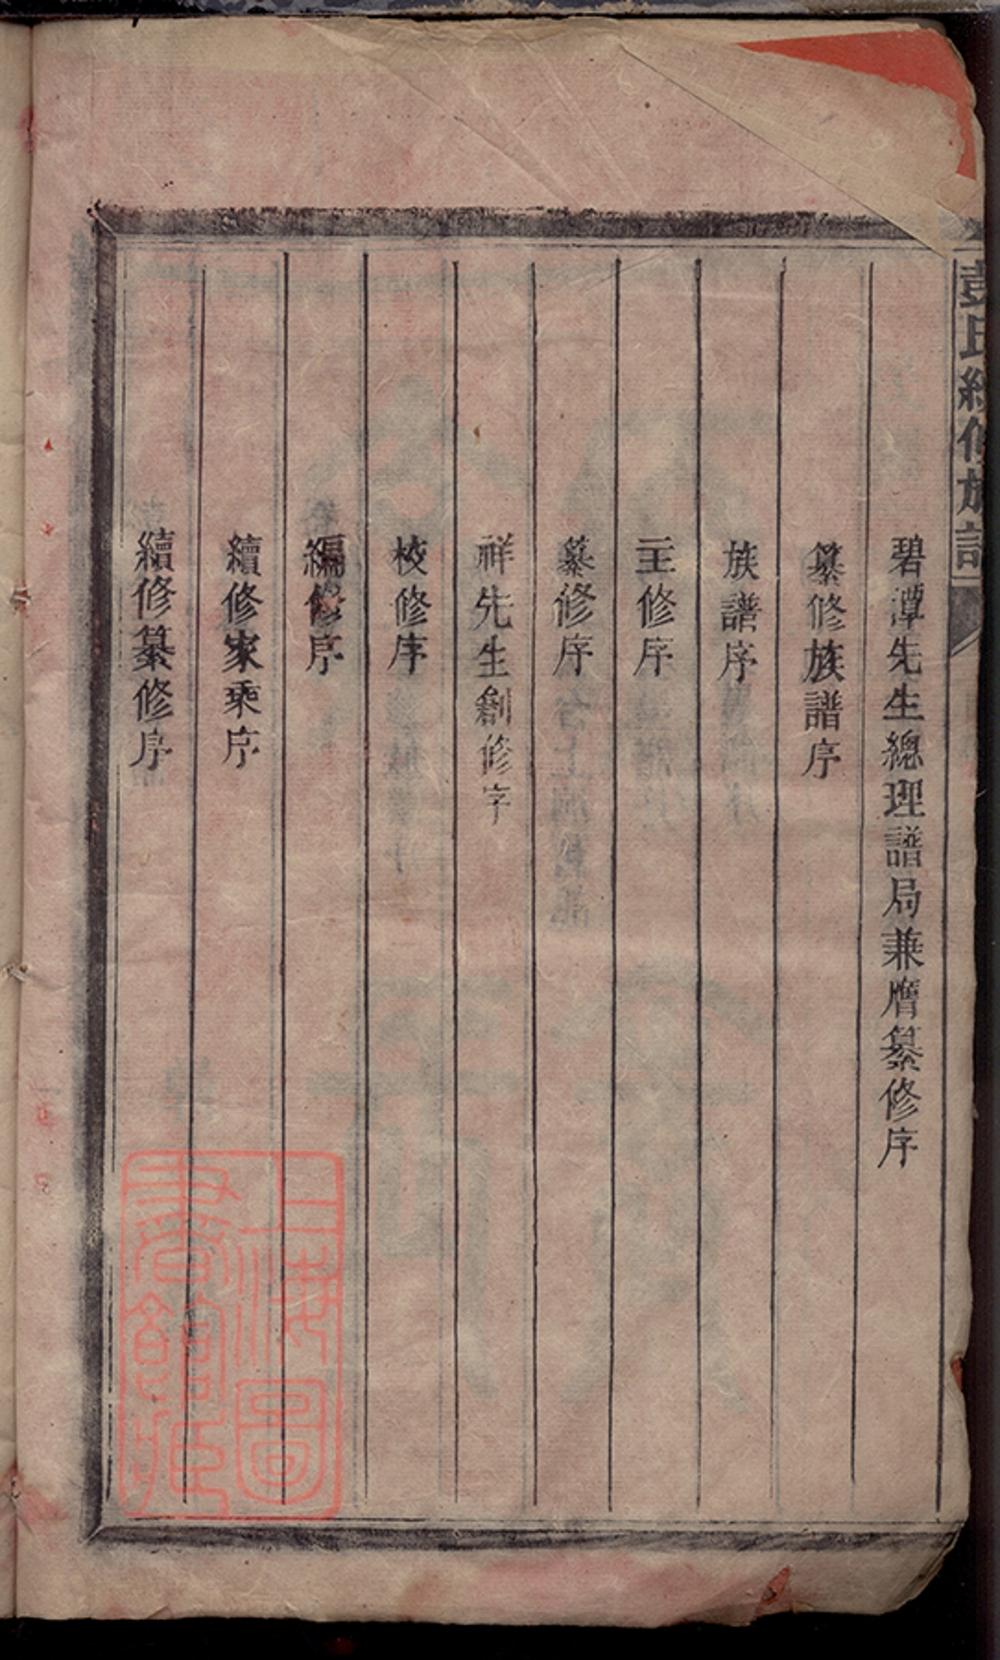 彭氏續修族譜
碧潭先生總理譜局兼膺纂修序
纂修族譜序
族譜序
主修序
纂修序
祥先生創修字
校修序
編修序
續修家乘序
續修纂修序
上海圖
書館藏